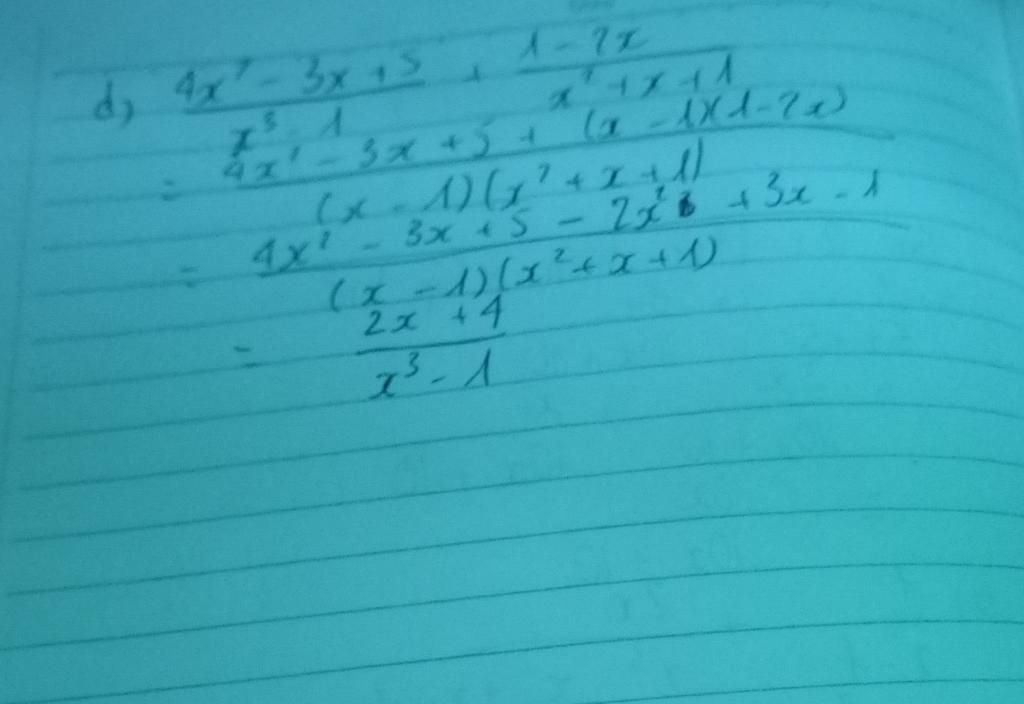 d) (4x² - 3x + 5)/(x³ - 1) + (1 - 2x)/(x² + x + 1)
= (4x² - 3x + 5 + (x - 1)(1 - 2x))/((x - 1)(x² + x + 1))
= (4x² - 3x + 5 - 2x² + 3x - 1)/((x - 1)(x² + x + 1))
= (2x + 4)/(x³ - 1)